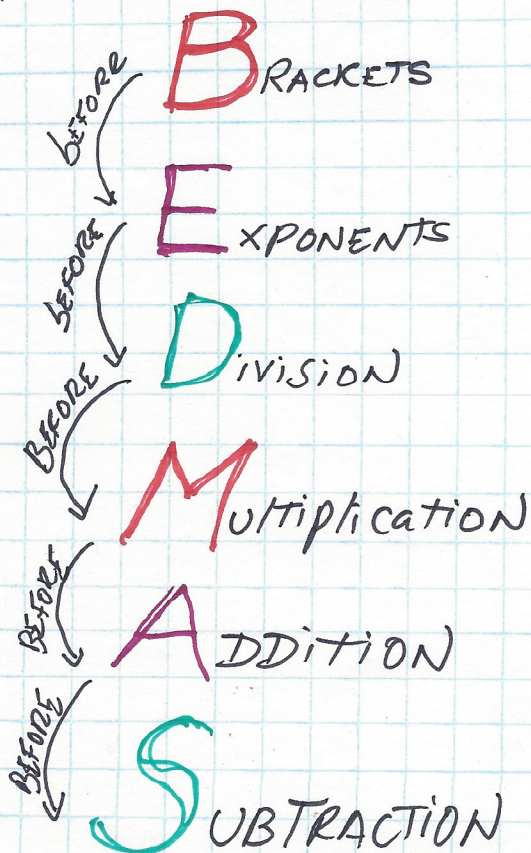 BRACKETS
BEFORE
EXPONENTS
BEFORE
DIVISION
BEFORE
MULTIPLICATION
BEFORE
ADDITION
BEFORE
SUBTRACTION